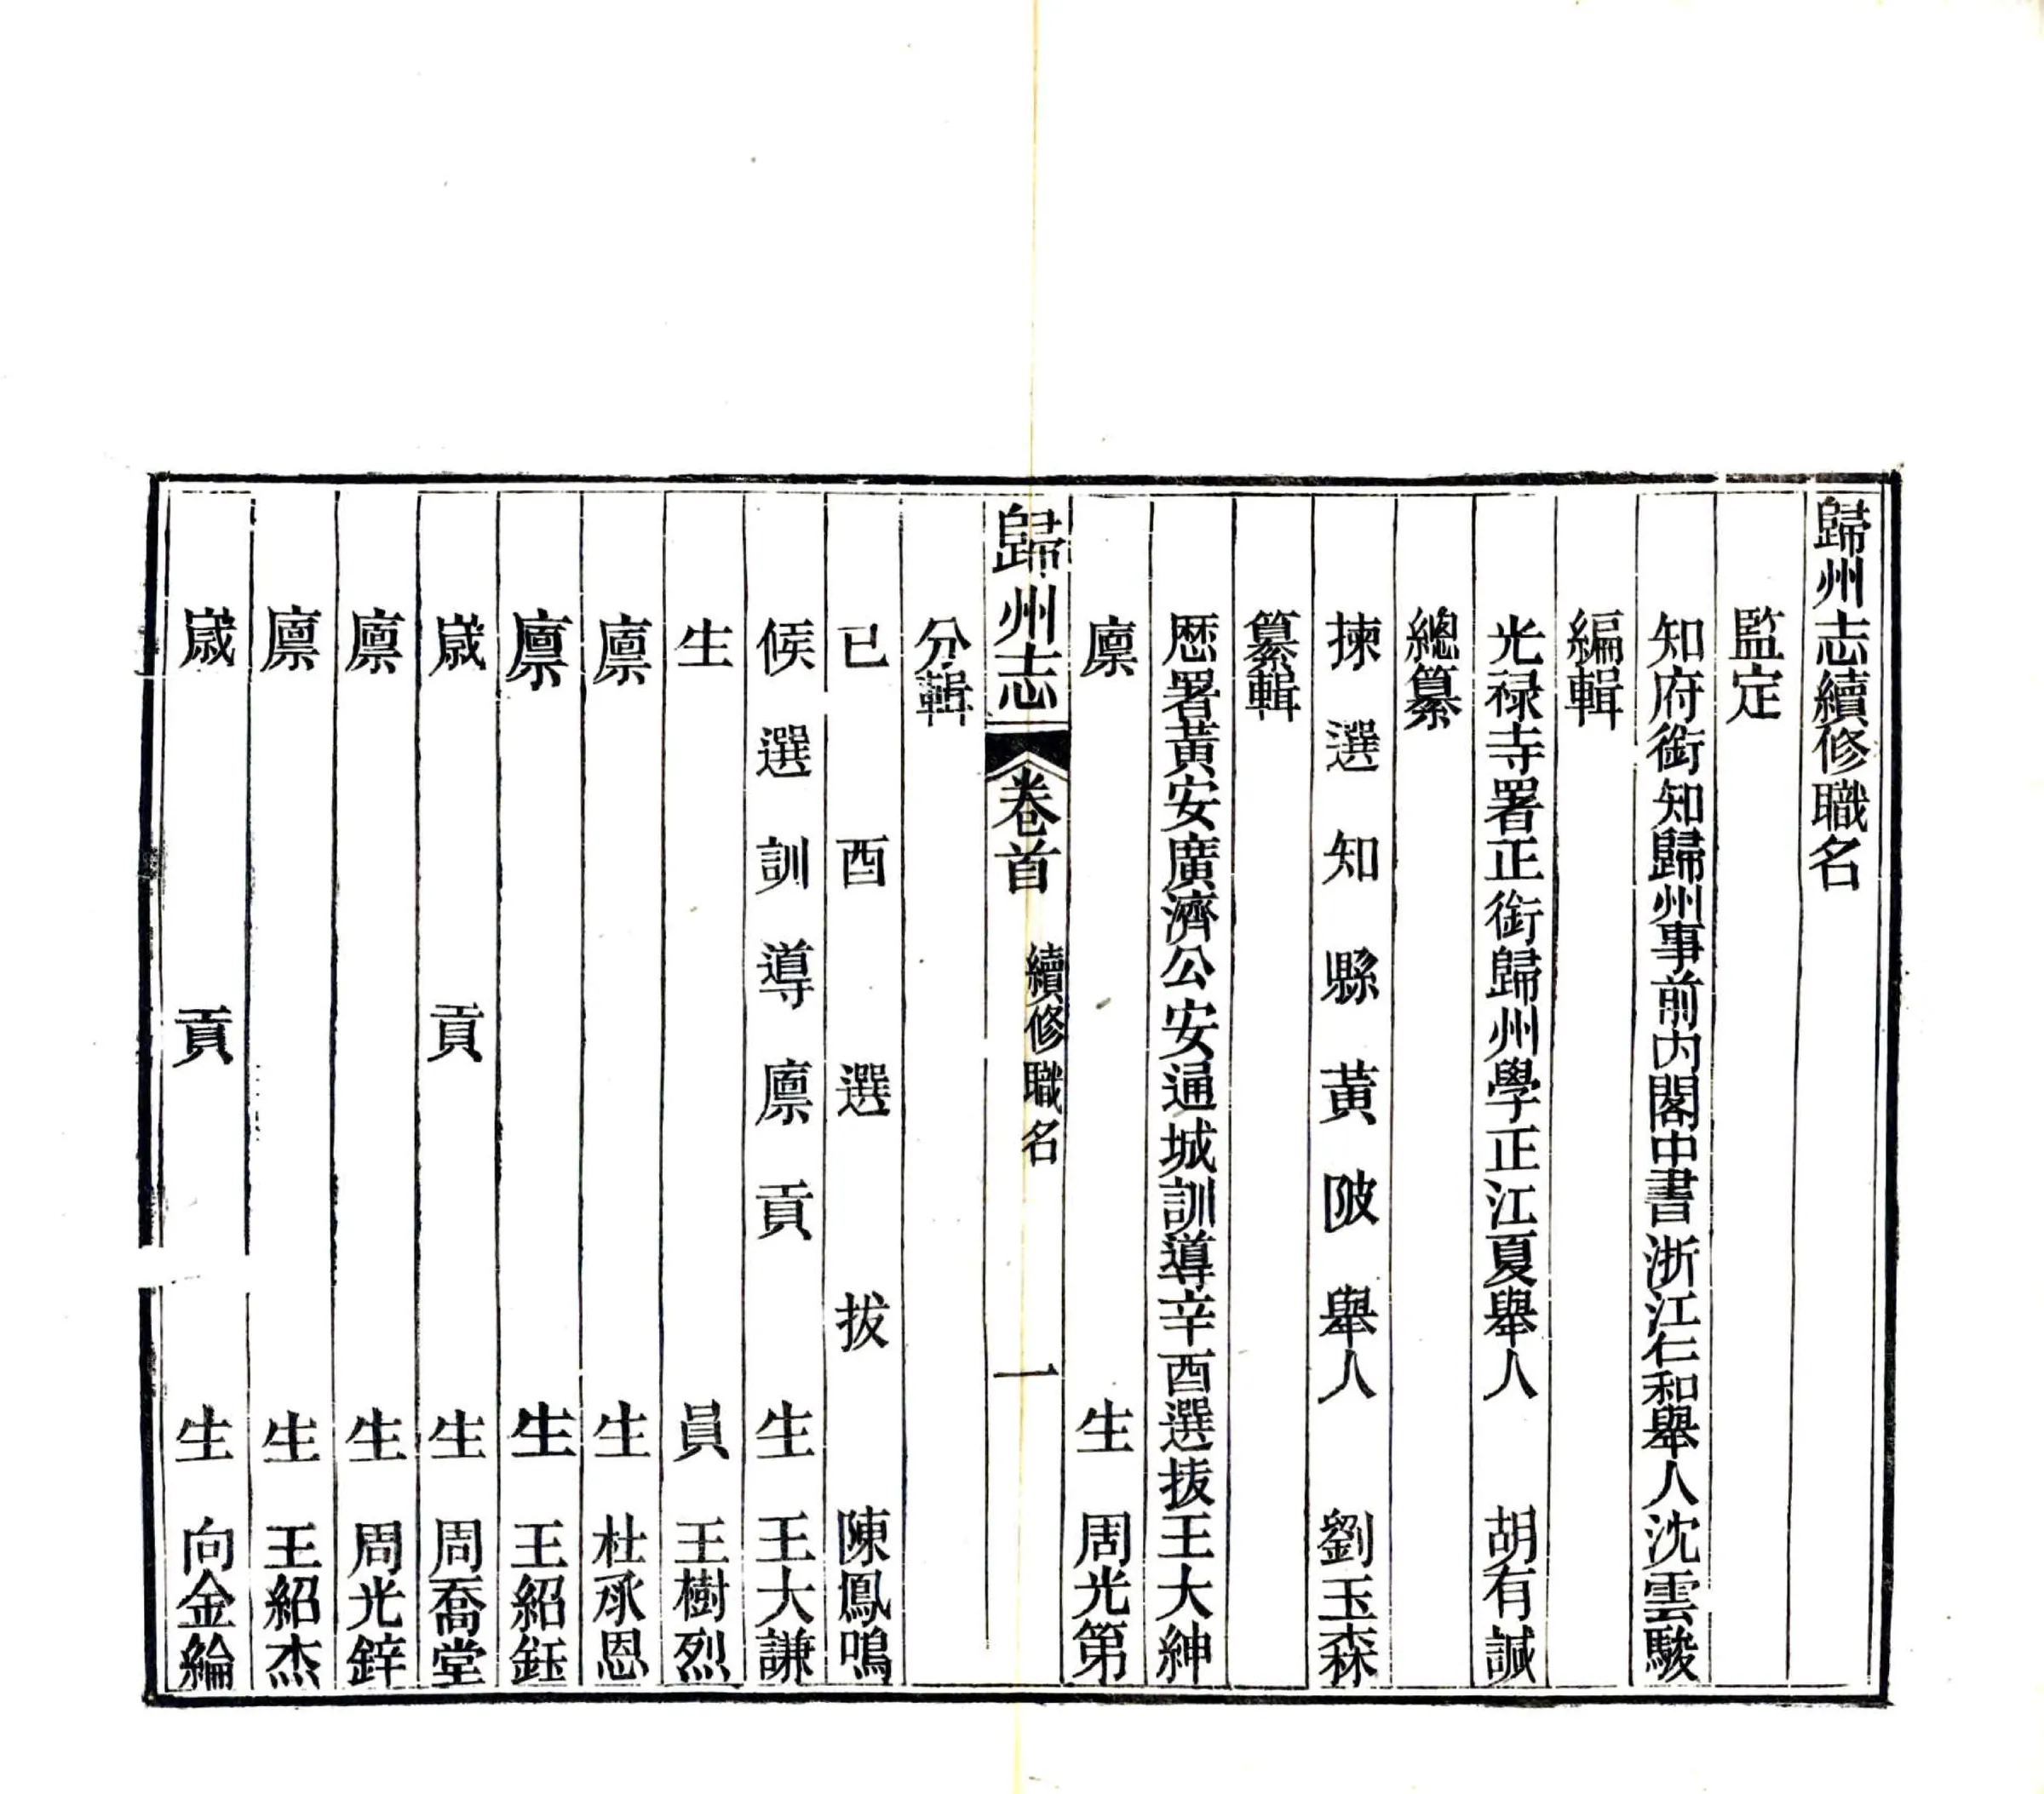 歸州志續修職名
監定
知府銜知歸州事前內閣中書浙江仁和舉人沈雲駿
編輯
光禄寺署正銜歸州學正江夏舉人胡有諴
總纂
揀選知縣黃陂舉人劉玉森
纂輯
歷署黃安廣濟公安通城訓導辛酉選拔王大紳
廪生周光第
歸州志
卷首
續修職名
一
分輯
已酉選拔陳鳳鳴
候選訓導廪貢生王大謙
生員王樹烈
廪生杜承恩
廪生王紹鈺
歲貢生周喬堂
廪生周光鋅
廪生王紹杰
歲貢生向金綸